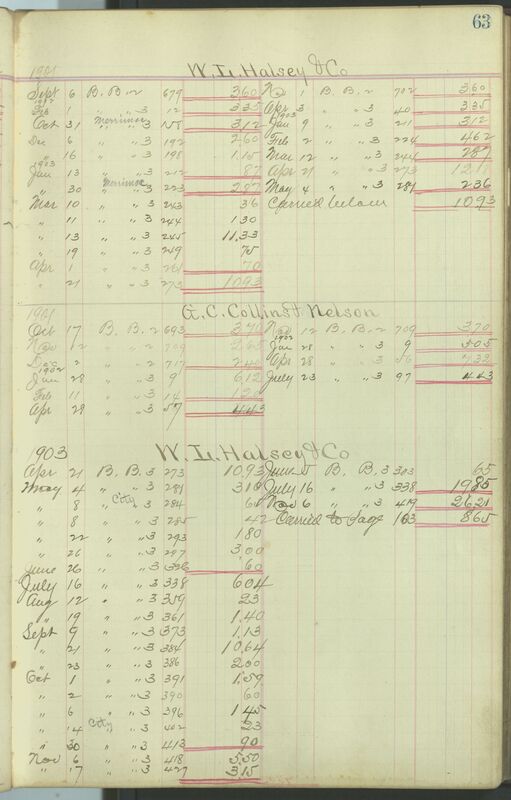 63
1901 W. L. Halsey & Co
Sept 6 B. B. 2 679 360 Nov 1 B. B. 2 702 360
1902
Feb 1 " " 3 12 335 Apr 3 " " 3 40 335
Oct 31 Merrimac " 3 158 312 1903 Jan 9 " " 3 211 312
Dec 6 " " 3 192 260 Feb 2 " " 3 224 462
" 16 " " 3 198 1.15 Mar 12 " " 3 244 287
1903
Jan 13 " " 3 212 87 Apr 21 " " 3 273
" 30 Merrimac " 3 223 287 May 4 " " 3 281 236
Mar 10 " " 3 243 36 Carried below 1093
" 11 " " 3 244 130
" 13 " " 3 245 11.33
" 19 " " 3 249 75
Apr 1 " " 3 261 70
" 21 " " 3 273 1093
1901 G. C. Collins & Nelson
Oct 17 B. B. 2 693 370 Nov 12 B. B. 2 709 370
Nov 12 " " 2 709 265 1902 Jan 28 " " 3 9 505
Dec 2 " " 2 717 240 Apr 28 " " 3 56 732
1902
Jan 28 " " 3 9 612 July 23 " " 3 97 443
Feb 11 " " 3 14 120
Apr 28 " " 3 57 443
1903 W. L. Halsey & Co
Apr 21 B. B. 3 273 1093 June 5 B. B. 3 303 65
May 4 " " 3 281 310 July 16 " " 3 338 1985
" 8 City " 3 284 60 Nov 6 " " 3 419 2621
" 8 " " 3 285 42 Carried to Page 103 865
" 22 " " 3 293 180
" 26 " " 3 297 3.00
June 26 " " 3 326 60
July 16 " " 3 338 604
Aug 12 " " 3 359 23
" 19 " " 3 361 1.40
Sept 9 " " 3 373 1.13
" 21 " " 3 384 10.64
" 23 " " 3 386 200
Oct 1 " " 3 391 1.59
" 2 " " 3 390 60
" 6 " " 3 396 1.45
" 14 City " 3 402 23
" 30 " " 3 413 90
Nov 6 " " 3 418 5.50
" 17 " " 3 427 315